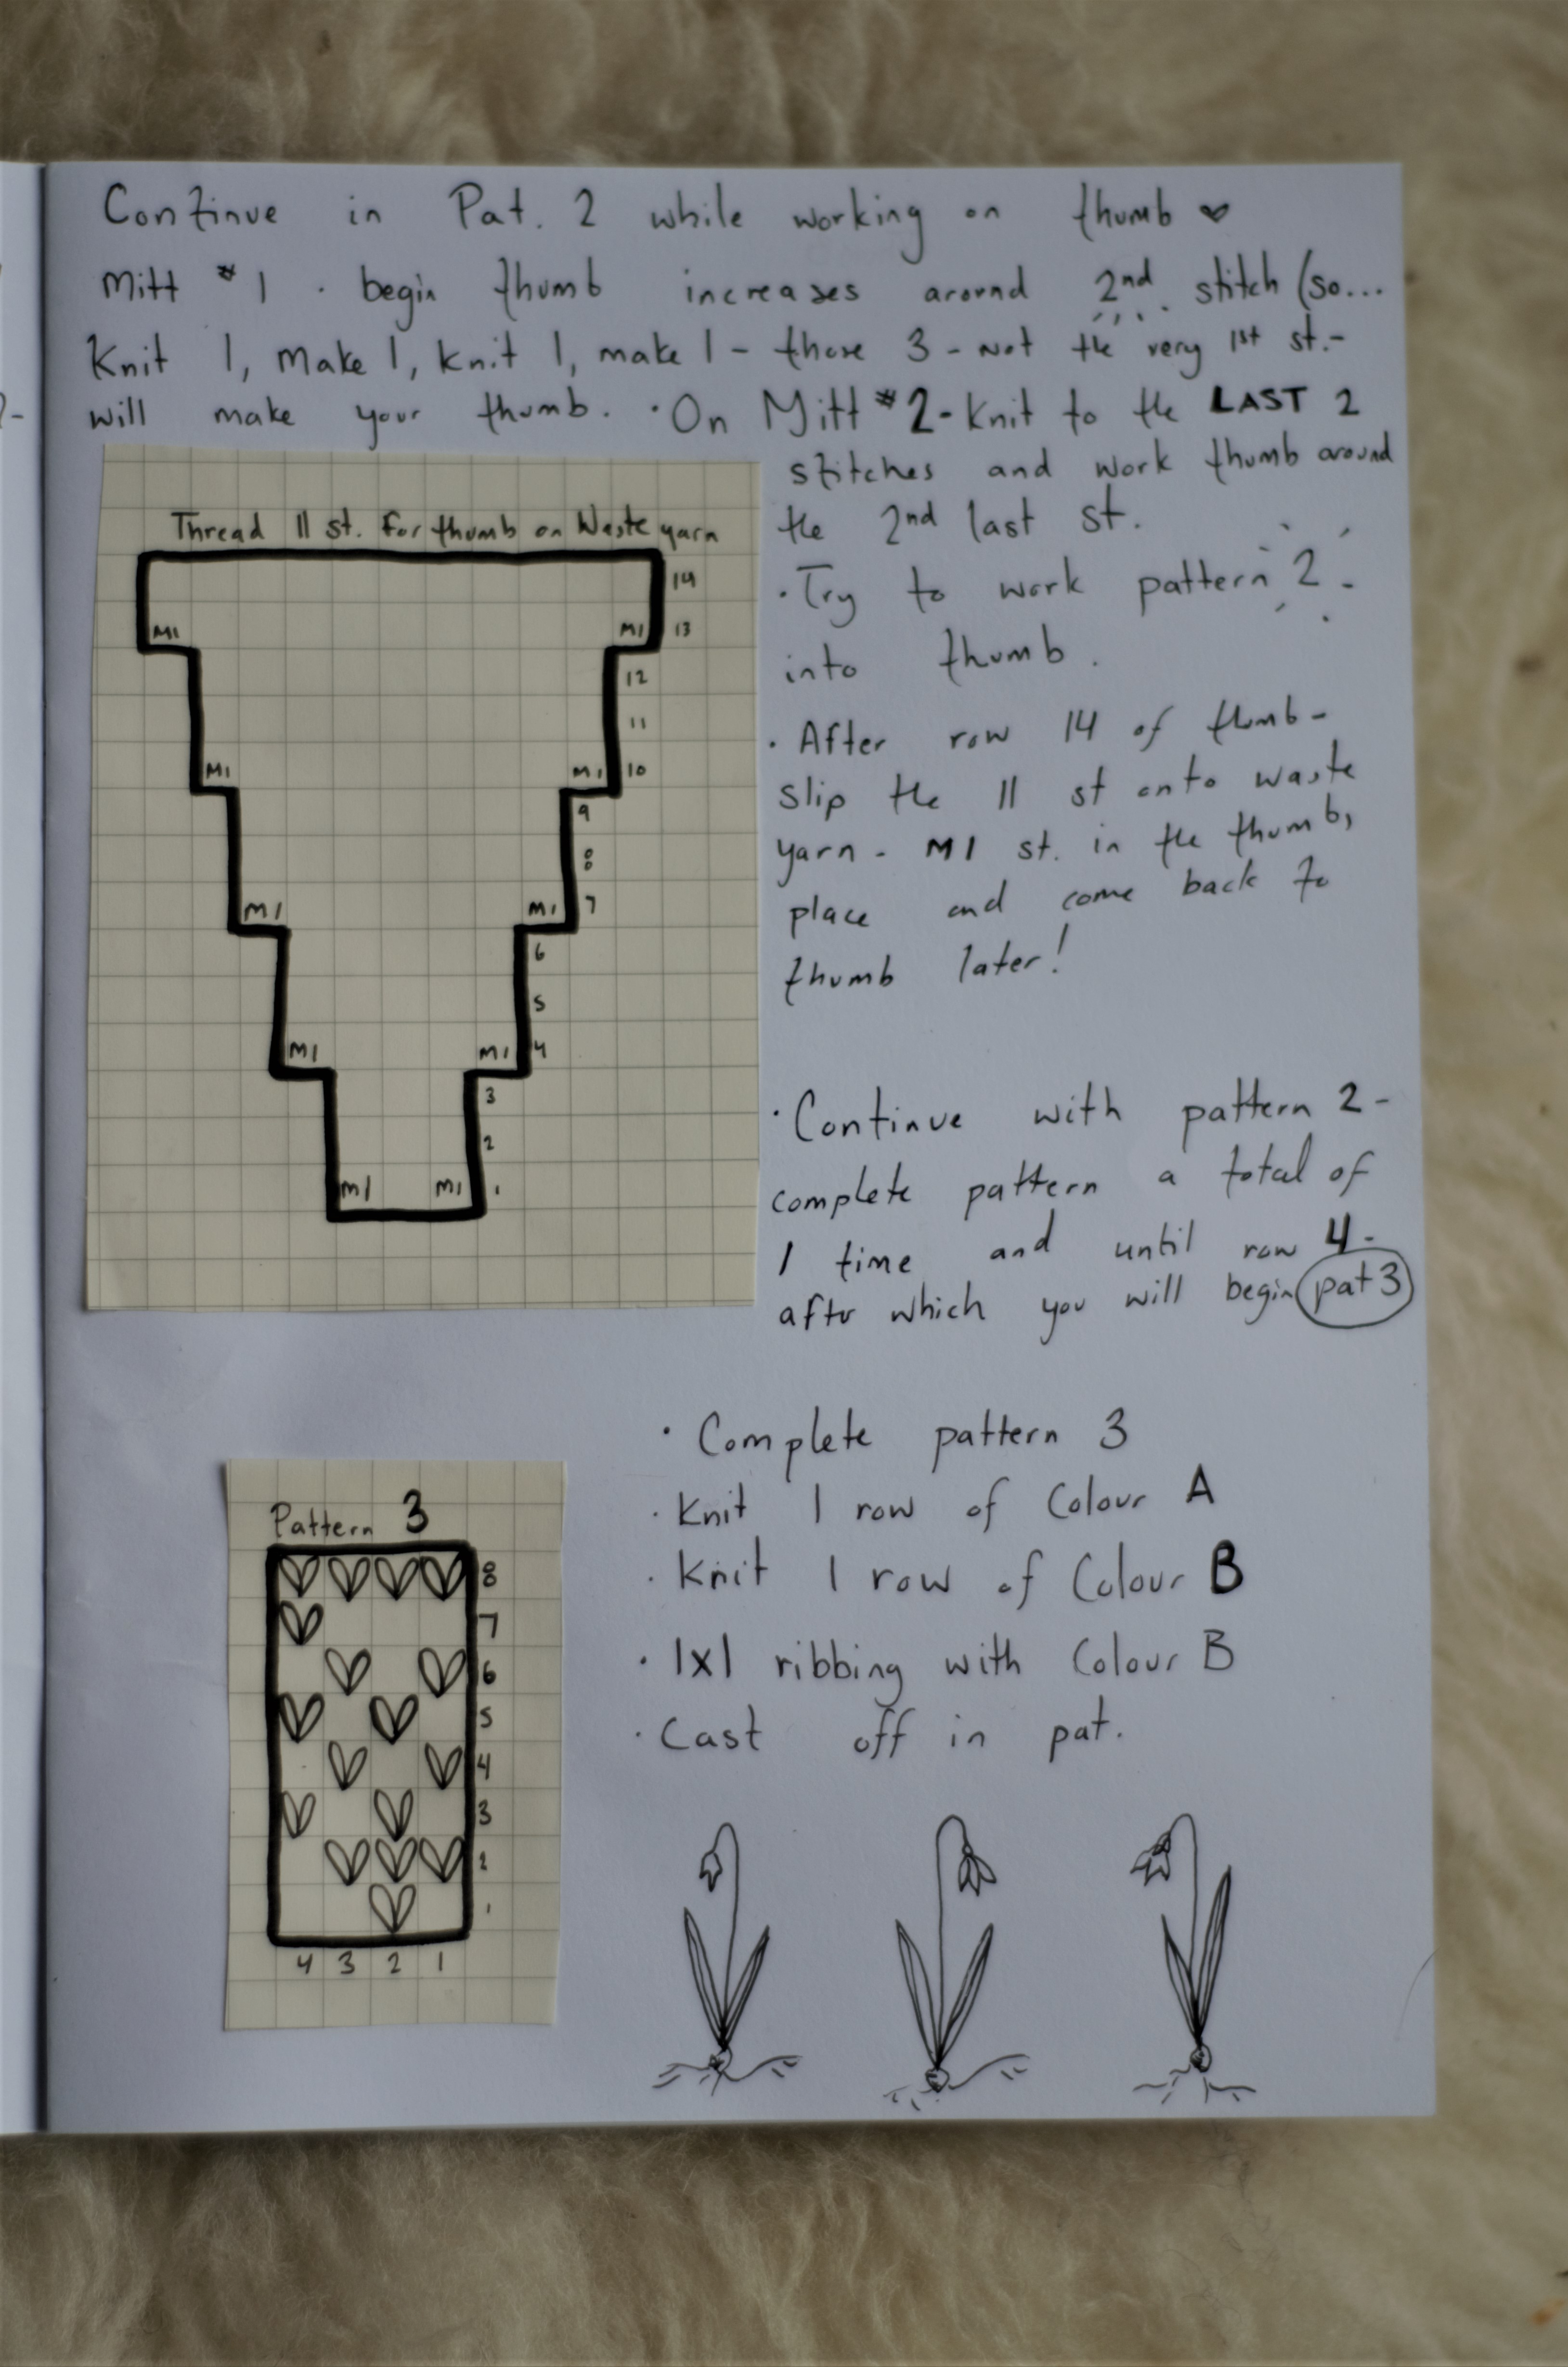 Continue in Pat. 2 while working on thumb ♥
Mitt #1 · begin thumb increases around 2nd stitch (so...
Knit 1, Make 1, knit 1, make 1 - those 3 - not the very 1st st.-
will make your thumb. · On Mitt #2 - Knit to the LAST 2
stitches and work thumb around
the 2nd last st.
· Try to work pattern 2 -
into thumb.
· After row 14 of thumb -
slip the 11 st onto waste
yarn - M1 st. in the thumbs
place and come back to
thumb later!
Thread 11 st. for thumb on Waste yarn
14
M1 M1 13
12
11
M1 M1 10
9
8
M1 M1 7
6
5
M1 M1 4
3
2
M1 M1 1
· Continue with pattern 2 -
complete pattern a total of
1 time and until row 4 -
after which you will begin pat 3
· Complete pattern 3
· Knit 1 row of Colour A
· Knit 1 row of Colour B
· 1x1 ribbing with Colour B
· Cast off in pat.
Pattern 3
8
7
6
5
4
3
2
1
4 3 2 1